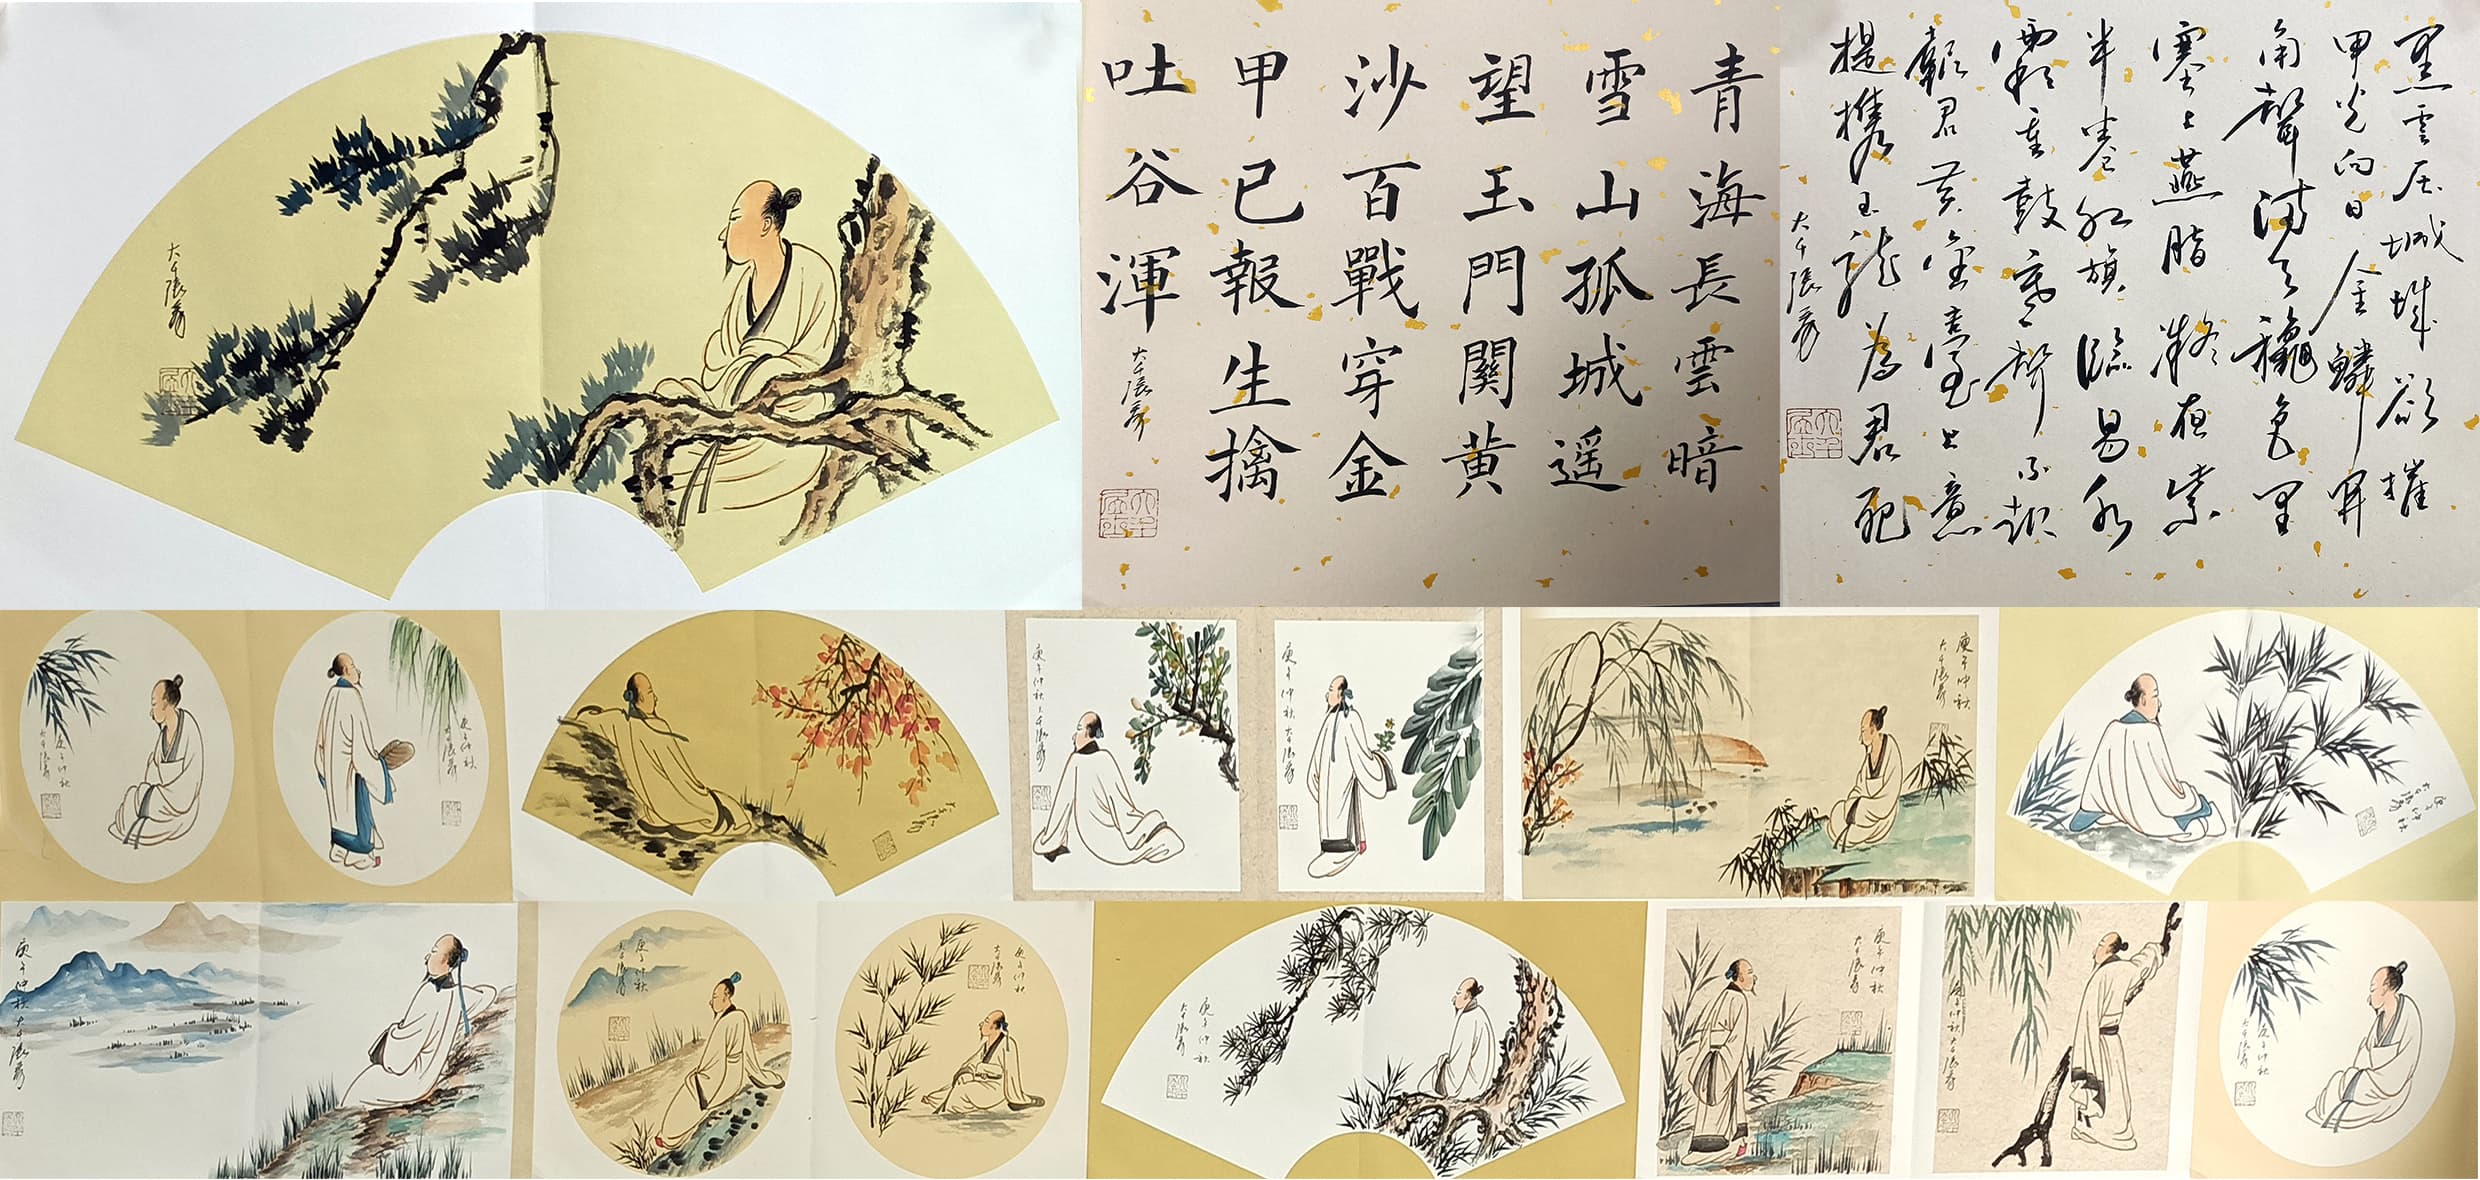 大千張爰
青海長雲暗
雪山孤城遥
望玉門關黄
沙百戰穿金
甲已報生擒
吐谷渾
大千張爰
黑雲压城城欲摧
甲光向日金鱗開
角聲满天穐色里
塞上燕脂凝夜紫
半卷红旗臨易水
霜重鼓寒聲不起
報君黄金臺上意
提携玉龍為君死
大千張爰
庚午仲秋
大千張爰
庚午仲秋
大千張爰
大千張爰
庚午仲秋大千張爰
庚午仲秋大千張爰
庚午仲秋
大千張爰
庚午仲秋
大千張爰
庚午仲秋大千張爰
庚午仲秋
大千張爰
庚午仲秋
大千張爰
庚午仲秋
大千張爰
庚午仲秋
大千張爰
庚午仲秋大千張爰
庚午仲秋
大千張爰